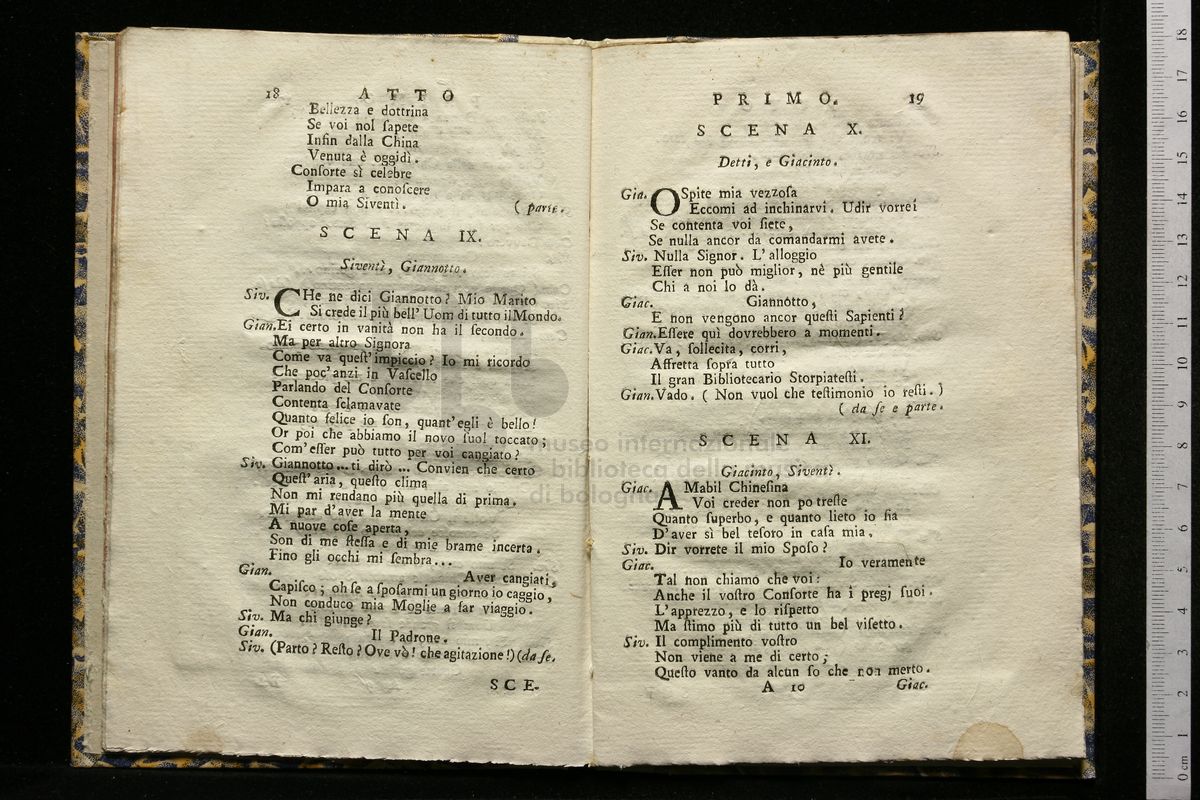 18 ATTO
Bellezza e dottrina
Se voi nol ſapete
Infin dalla China
Venuta è oggidì.
Conſorte sì celebre
Impara a conoſcere
O mia Siventì. ( parte.
SCENA IX.
Siventì, Giannotto.
Siv. CHe ne dici Giannotto? Mio Marito
Si crede il più bell' Uom di tutto il Mondo.
Gian. Ei certo in vanità non ha il ſecondo.
Ma per altro Signora
Come va queſt' impiccio? Io mi ricordo
Che poc' anzi in Vaſcello
Parlando del Conſorte
Contenta ſclamavate
Quanto felice io ſon, quant' egli è bello!
Or poi che abbiamo il novo ſuol toccato;
Com' eſſer può tutto per voi cangiato?
Siv. Giannotto... ti dirò ... Convien che certo
Queſt' aria, queſto clima
Non mi rendano più quella di prima.
Mi par d' aver la mente
A nuove coſe aperta,
Son di me ſteſſa e di mie brame incerta.
Fino gli occhi mi ſembra...
Gian. Aver cangiati,
Capiſco; oh ſe a ſpoſarmi un giorno io caggio,
Non conduco mia Moglie a far viaggio.
Siv. Ma chi giunge?
Gian. Il Padrone.
Siv. (Parto? Reſto? Ove vò! che agitazione!) (da ſe.
SCE-
PRIMO. 19
SCENA X.
Detti, e Giacinto.
Gia. OSpite mia vezzoſa
Eccomi ad inchinarvi. Udir vorrei
Se contenta voi ſiete,
Se nulla ancor da comandarmi avete.
Siv. Nulla Signor. L' alloggio
Eſſer non può miglior, nè più gentile
Chi a noi lo dà.
Giac. Giannotto,
E non vengono ancor queſti Sapienti?
Gian. Eſſere quì dovrebbero a momenti.
Giac. Va, ſollecita, corri,
Affretta ſopra tutto
Il gran Bibliotecario Storpiateſti.
Gian. Vado. ( Non vuol che teſtimonio io reſti. )
( da ſe e parte.
SCENA XI.
Giacinto, Siventì.
Giac. AMabil Chineſina
Voi creder non potreſte
Quanto ſuperbo, e quanto lieto io ſia
D' aver sì bel teſoro in caſa mia.
Siv. Dir vorrete il mio Spoſo?
Giac. Io veramente
Tal non chiamo che voi:
Anche il voſtro Conſorte ha i pregj ſuoi.
L' apprezzo, e lo riſpetto
Ma ſtimo più di tutto un bel viſetto.
Siv. Il complimento voſtro
Non viene a me di certo;
Queſto vanto da alcun ſo che non merto.
A 10 Giac.
museo internazionale
e biblioteca della musica
di bologna
0 cm 1 2 3 4 5 6 7 8 9 10 11 12 13 14 15 16 17 18